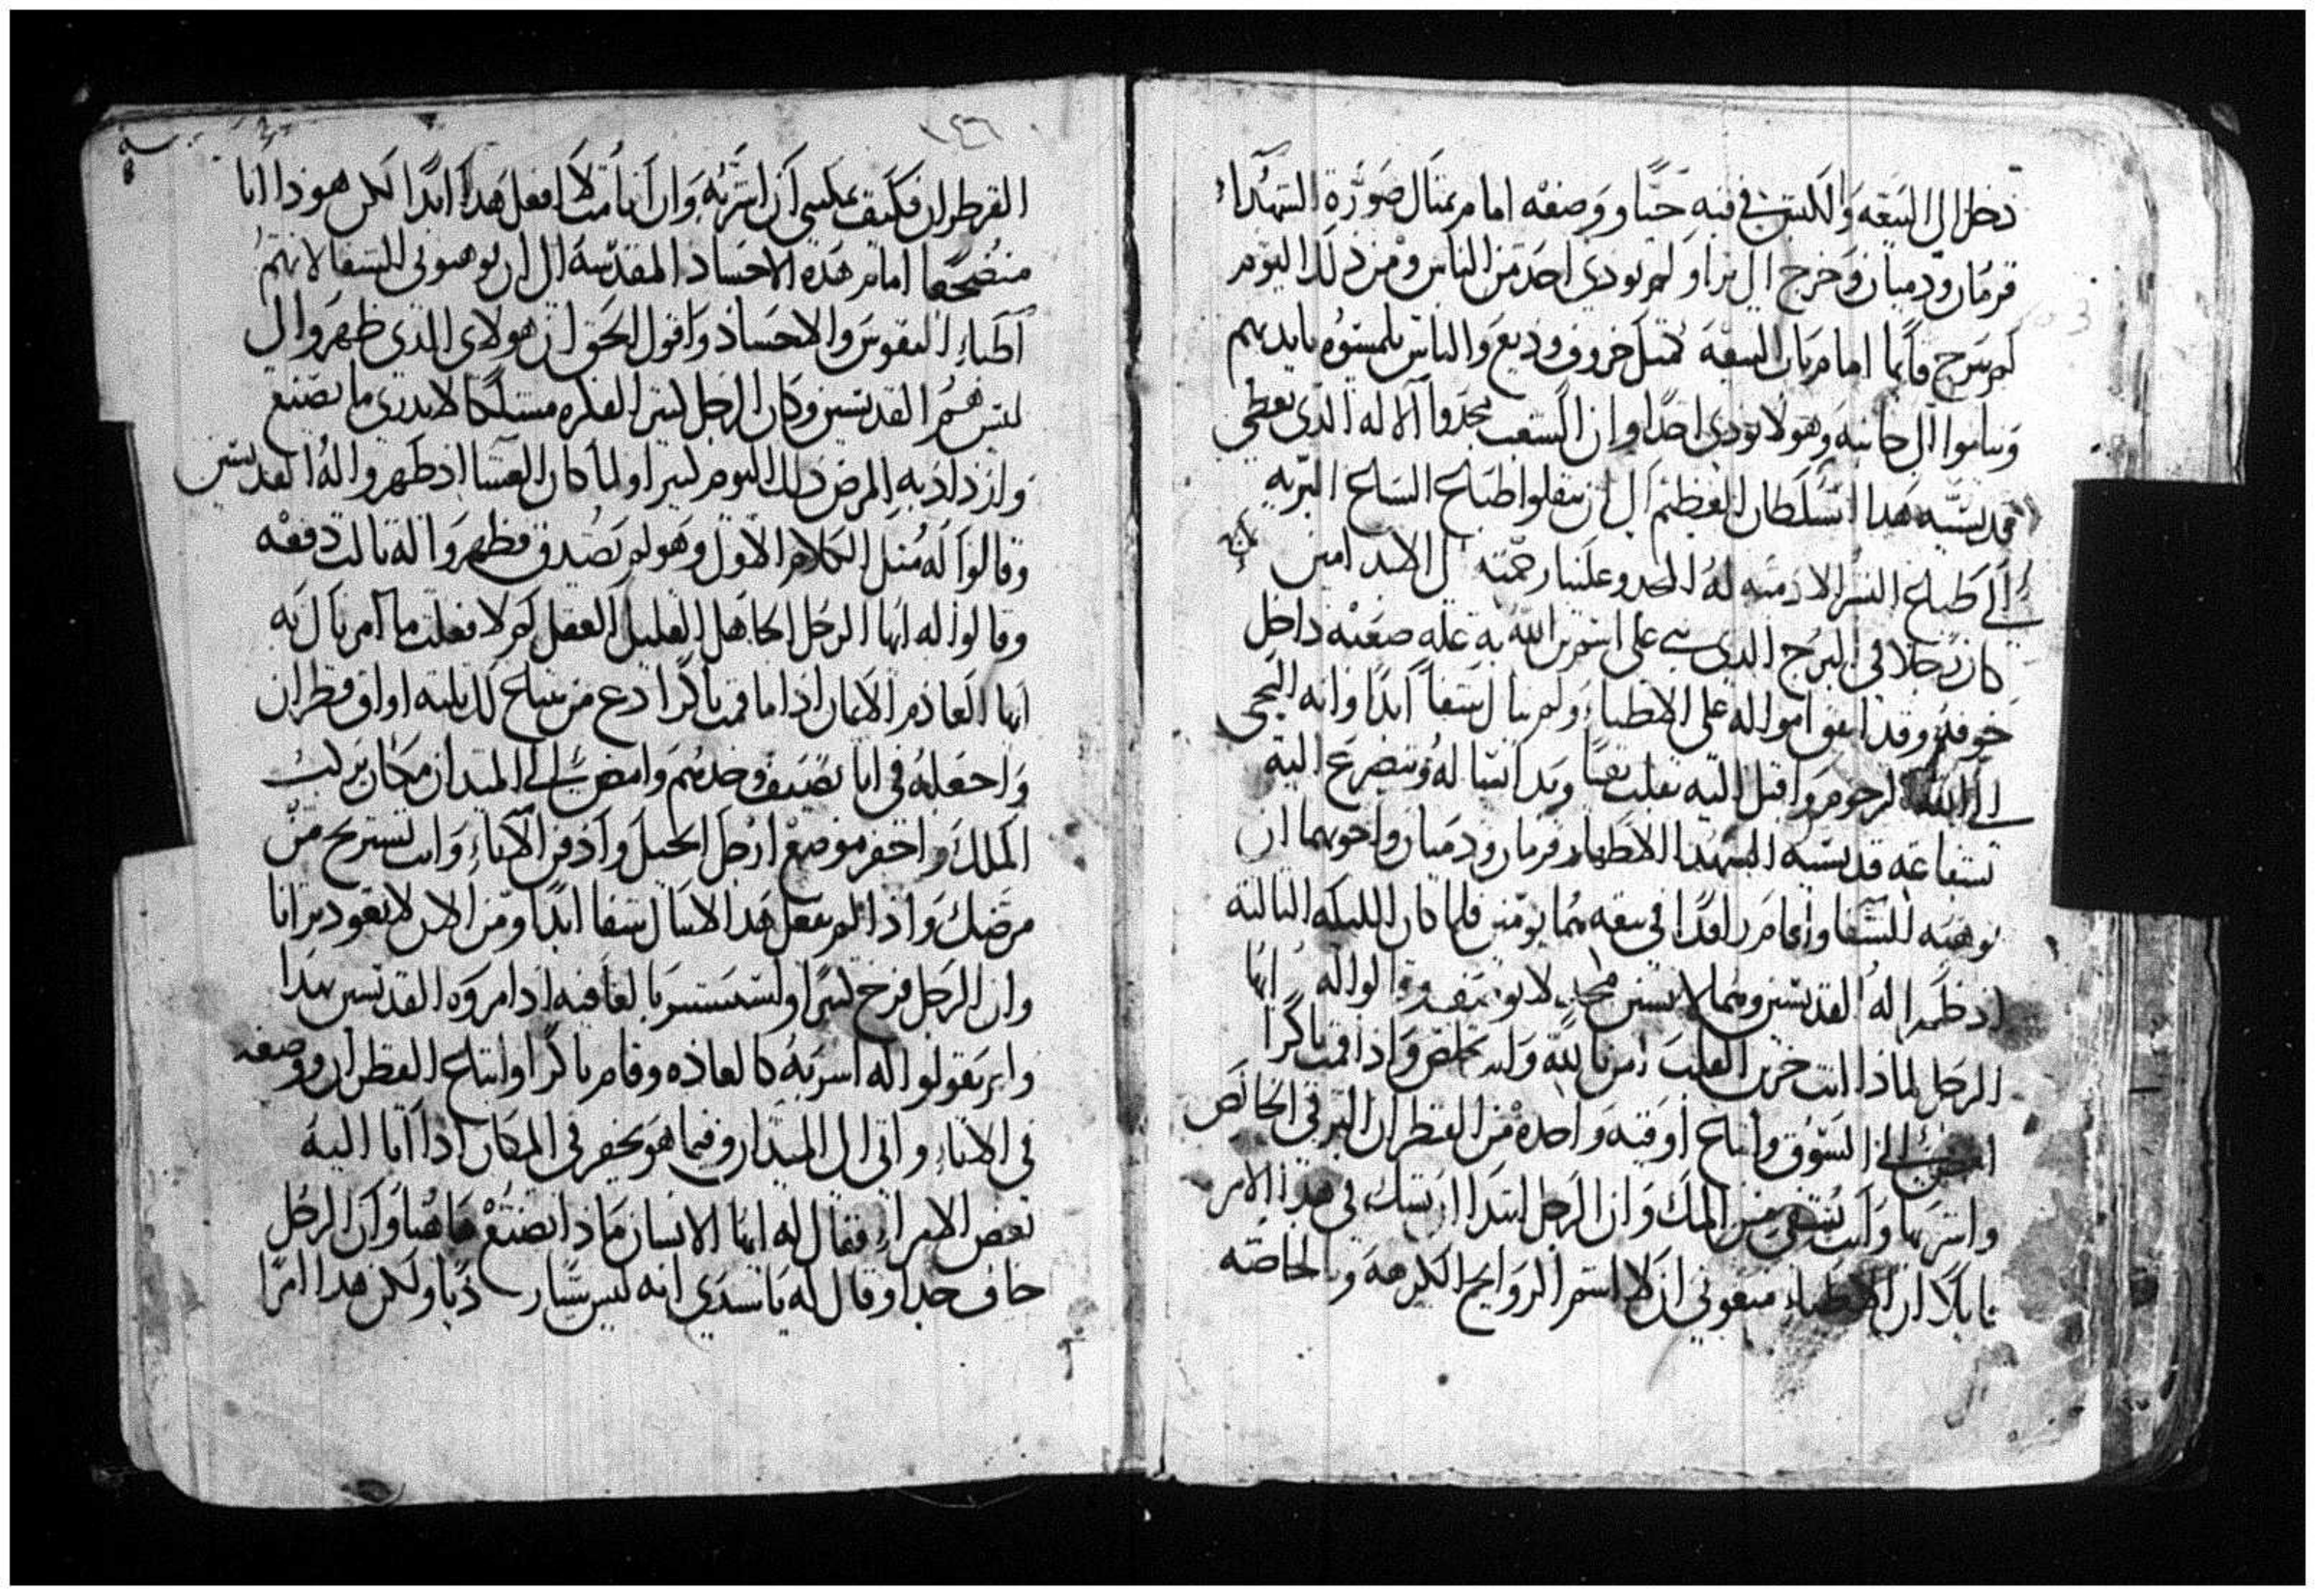 دخل الى البيعه والكبش في فيه حيا ووضعه امام تمثال صورة الشهداء
قزمان ودميان وخرج الى برا ولم يودي احد من الناس ومن ذلك اليوم
لم يبرح قايما امام باب البيعه مثل خروف وديع والناس يلمسوه بايديهم
ويناموا الى جانبه وهو لا يودي احدا وان الشعب مجدوا الاله الذي يعطي
قديسيه هدا السلطان العظيم الى ان ينقلوا طباع السباع البريه
الى طباع البشر الادميه له المجد وعلينا رحمته الى الابد امين
كان رجلا في البرج الذي على اسم به عله صعبه داخل
جوفه وقد انفق امواله على الاطبا ولم ينال شفا ابدا وانه التجى
الى الله الرحوم واقبل اليه بقلب نقيا وبدا يساله ويتضرع اليه
بشفاعة قديسيه الشهدا الاطهار قزمان ودميان واخوتهما ان
يوهبه الشفا واقام راقدا في بيعه هم يومين فلما كان الليله التالته
اذ ظهرا له القديسين وهما لابسين لا يوصف وقالوا له ايها
الرجل لماذا انت حزين القلب امن بالله وانت تخلص واذا قمت باكرا
امضي الى السوق وابتاع اوقيه واحده من القطران البرقي الخالص
واشربها وانت تشفى من المك وان الرجل ابتدا ان يشك في هذا الامر
قايلا ان الاطباء منعوني ان لا اشم الروايح الكرهه وبالخاصه
القطران فكيف يمكنني ان اشربه وان انا مت لا افعل هدا ابدا لكن هوذا انا
منضجعا امام هذه الاجساد المقدسه الى ان يوهبوني الشفا لانهم
اطباء النفوس والاجساد واقول الحق ان هولاي الذي ظهروا لي
ليس هم القديسين وكان الرجل كتير الفكره متشككا لا يدري ما يصنع
وازداد به المرض ذلك اليوم كتيرا ولما كان العشا اذ ظهروا له القديسين
وقالوا له مثل الكلام الاول وهو لم يصدق فظهروا له تالت دفعه
وقالوا له ايها الرجل الجاهل القليل العقل لم لا فعلت ما امرناك به
ايها العادم الايمان اذا ما قمت باكرا دع من يبتاع لك تلته اواق قطران
واجعله في انا نضيف وخدهم وامضي الى الميدان مكان يركب
الملك واحفر موضع ارجل الخيل وادفن الاناء وانت تستريح من
مرضك واذا لم تفعل هدا لا تنال شفا ابدا ومن الان لا تعود ترانا
وان الرجل فرح كتيرا واستبشر بالعافيه اذ امروه القديسين بهدا
ولم يقولوا له اشربه كالعاده وقام باكرا وابتاع القطران ووضعه
في الاناء واتى الى الميدان وفيما هو يحفر في المكان اذا اتا اليه
بعض الامراء فقال له ايها الانسان ماذا تصنع هاهنا وان الرجل
خاف جدا وقال له يا سيدي انه ليس ولكن هدا امرا